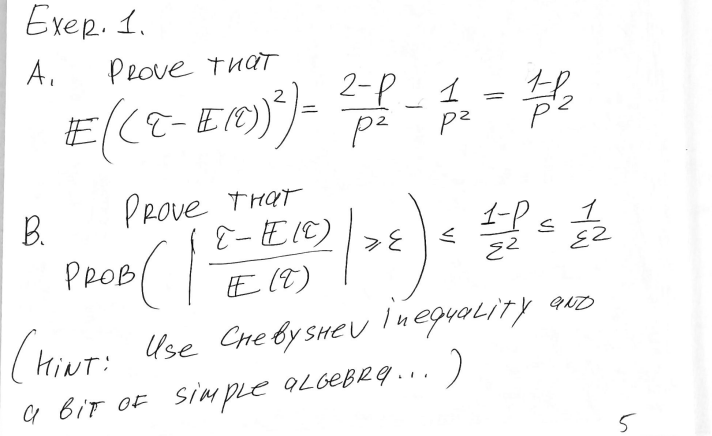 Exer. 1.
A. Prove that
𝔼((τ - 𝔼(τ))²) = (2-p)/p² - 1/p² = (1-p)/p²
B. Prove that
PROB(|(τ - 𝔼(τ))/𝔼(τ)| ≥ ε) ≤ (1-p)/ε² ≤ 1/ε²
(Hint: Use Chebyshev inequality and
a bit of simple algebra...)
5